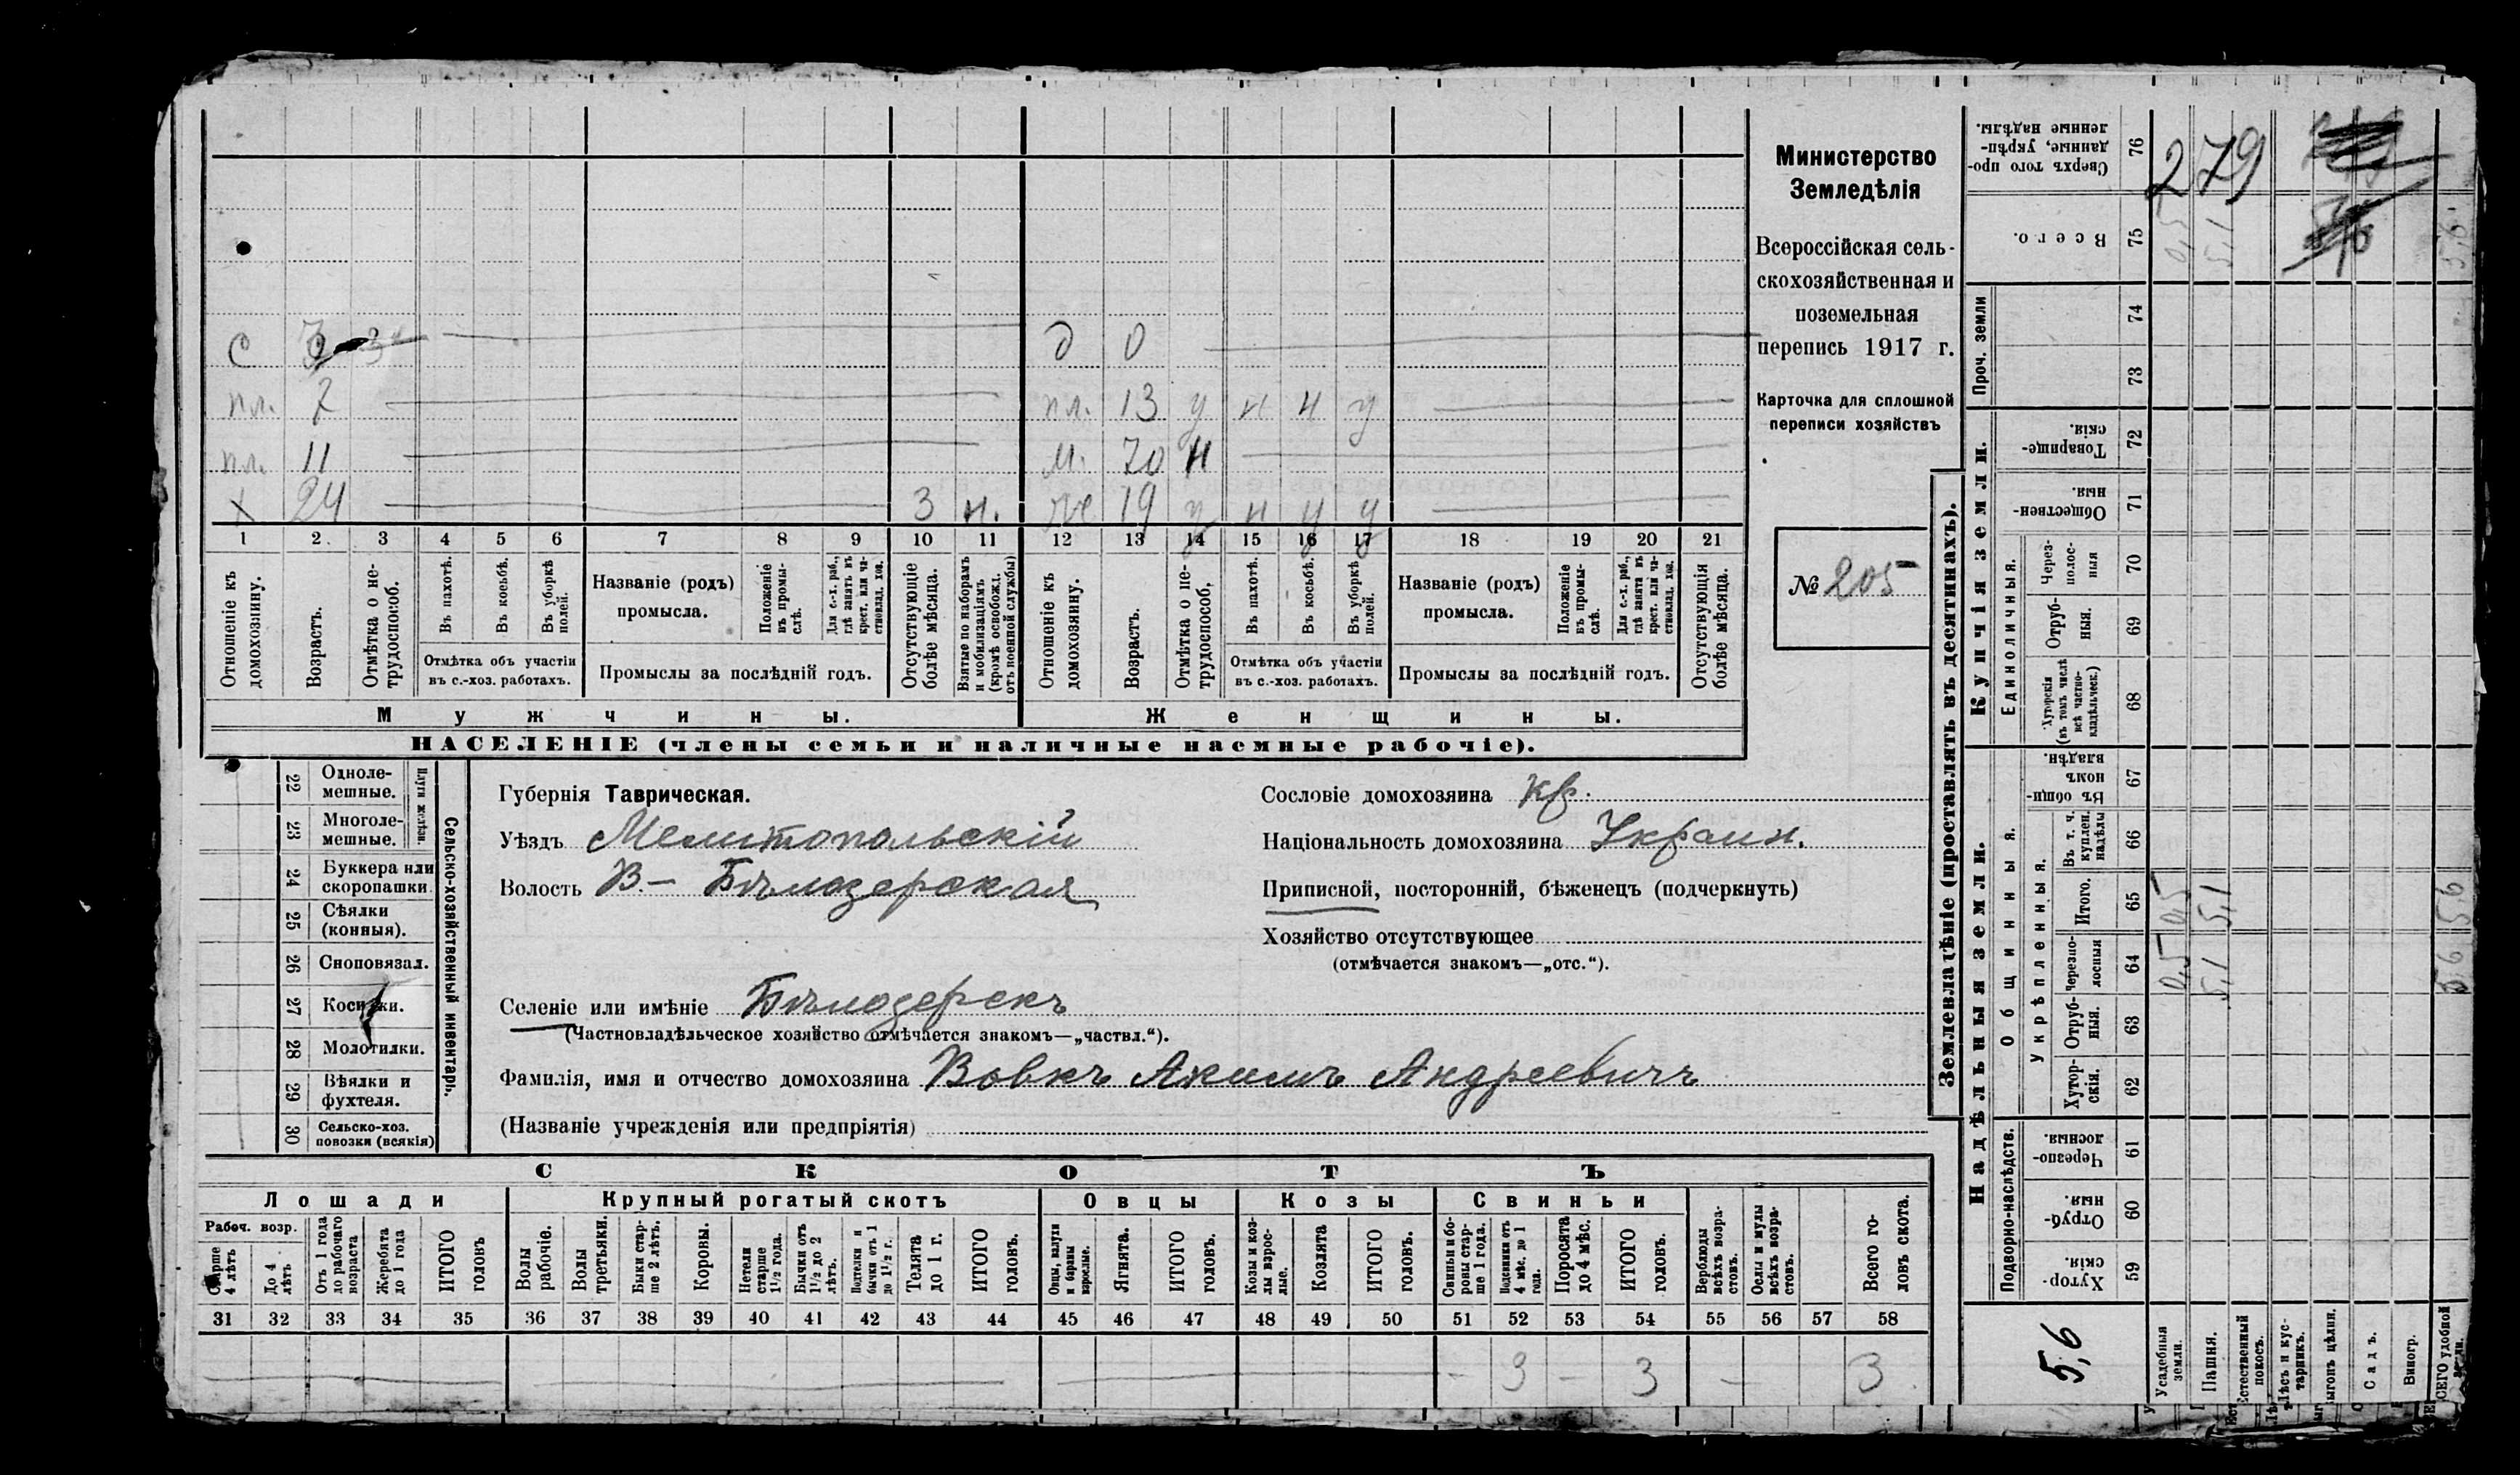 С 3
д 0
пл. 7
пл. 13 у н н у
пл. 11
м. 70 н
х 24 3 н.
же 19 у н у у
1 2 3 4 5 6 7 8 9 10 11 12 13 14 15 16 17 18 19 20 21
Отношеніе къ домохозяину.
Возрастъ.
Отмѣтка о нетрудоспособ.
Въ пахотѣ.
Въ косьбѣ.
Въ уборкѣ полей.
Отмѣтка объ участіи
въ с.-хоз. работахъ.
Названіе (родъ)
промысла.
Положеніе въ промыслѣ.
Для с.-х. раб., гдѣ занятъ въ крест. или частновлад. хоз.
Промыслы за послѣдній годъ.
Отсутствующіе болѣе мѣсяца.
Взятые по наборамъ и мобилизаціямъ (кромѣ освобожд. отъ военной службы)
Отношеніе къ домохозяину.
Возрастъ.
Отмѣтка о нетрудоспособ.
Въ пахотѣ.
Въ косьбѣ.
Въ уборкѣ полей.
Отмѣтка объ участіи
въ с.-хоз. работахъ.
Названіе (родъ)
промысла.
Положеніе въ промыслѣ.
Для с.-х. раб., гдѣ занята въ крест. или частновлад. хоз.
Промыслы за послѣдній годъ.
Отсутствующія болѣе мѣсяца.
Мужчины.
Женщины.
НАСЕЛЕНІЕ (члены семьи и наличные наемные рабочіе).
Министерство
Земледѣлія
Всероссійская сель-
скохозяйственная и
поземельная
перепись 1917 г.
Карточка для сплошной
переписи хозяйствъ
№ 205
22 Одноле-
мешные.
23 Многоле-
мешные.
Плуги желѣзн.
24 Буккера или
скоропашки
25 Сѣялки
(конныя).
26 Сноповязал.
27 Косилки.
28 Молотилки.
29 Вѣялки и
фухтеля.
30 Сельско-хоз.
повозки (всякія)
Сельско-хозяйственный инвентарь.
Губернія Таврическая.
Уѣздъ Мелитопольскій
Волость В-Бѣлозерская
Селеніе или имѣніе Бѣлозерскъ
(Частновладѣльческое хозяйство отмѣчается знакомъ—„частвл.“).
Фамилія, имя и отчество домохозяина Вовкъ Акимъ Андреевичъ
(Названіе учрежденія или предпріятія)
Сословіе домохозяина кр.
Національность домохозяина Украин.
Приписной, посторонній, бѣженецъ (подчеркнуть)
Хозяйство отсутствующее
(отмѣчается знакомъ—„отс.“).
СКОТЪ
Лошади
Крупный рогатый скотъ
Овцы
Козы
Свиньи
Рабоч. возр.
Старше 4 лѣтъ
До 4 лѣтъ
Отъ 1 года до рабочаго возраста
Жеребята до 1 года
ИТОГО головъ
Волы рабочіе.
Волы третьяки.
Быки старше 2 лѣтъ.
Коровы.
Нетели старше 1½ года.
Бычки отъ 1½ до 2 лѣтъ.
Подтелки и бычки отъ 1 до 1½ г.
Телята до 1 г.
ИТОГО головъ.
Овцы, валухи и бараны взрослые.
Ягнята.
ИТОГО головъ.
Козы и козлы взрослые.
Козлята
ИТОГО головъ.
Свиньи и боровы старше 1 года.
Подсвинки отъ 4 мѣс. до 1 года.
Поросята до 4 мѣс.
ИТОГО головъ.
Верблюды всѣхъ возрастовъ.
Ослы и мулы всѣхъ возрастовъ.
Всего головъ скота.
31 32 33 34 35 36 37 38 39 40 41 42 43 44 45 46 47 48 49 50 51 52 53 54 55 56 57 58
- 3 - 3 - 3
Землевладѣніе (проставлять въ десятинахъ).
Надѣльныя земли.
Купчія земли.
Проч. земли
Подворно-наслѣдств.
Общинныя.
Укрѣпленныя.
Единоличныя.
Сверхъ того проданные, укрѣпленные надѣлы. 76
Всего. 75
74
73
Товарищескія. 72
Общественныя. 71
Черезполосныя 70
Отрубныя. 69
Хуторскія (въ томъ числѣ всѣ частновладѣльческ.) 68
Въ общинномъ владѣн. 67
Въ т. ч. куплен. надѣлы 66
Итого. 65
Черезполосныя 64
Отрубныя. 63
Хуторскія. 62
Черезполосныя. 61
Отрубныя. 60
Хуторскія. 59
279
0,5 5,1 5,6
0,5 5,1 5,6
0,5 5,1 5,6
5,6
Усадебныя земли.
Пашня.
Естественный покосъ.
Лѣсъ и кустарникъ.
Выгонъ цѣлин.
Садъ.
Виногр.
ВСЕГО удобной